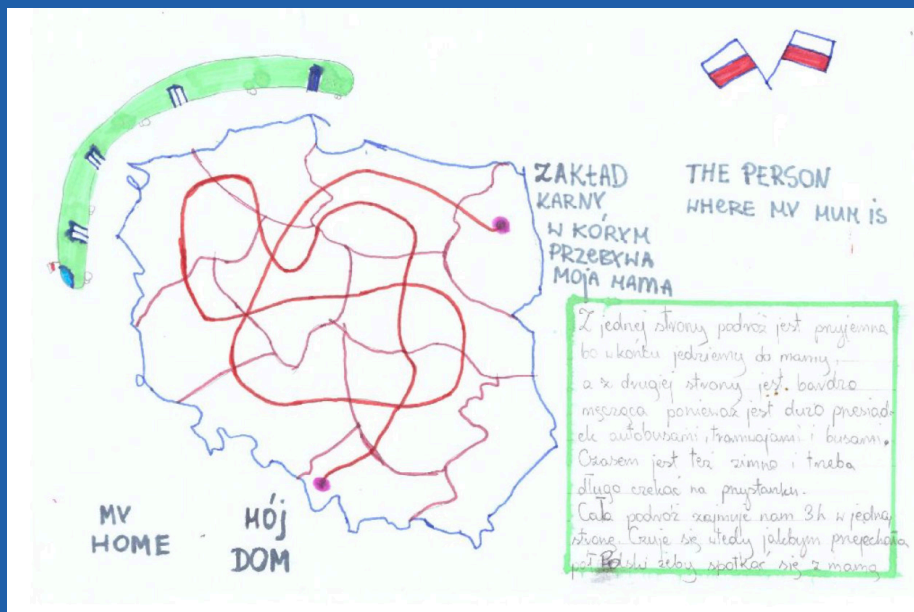 ZAKŁAD
KARNY
W KÓRYM
PRZEBYWA
MOJA MAMA
THE PERSON
WHERE MY MUM IS
Z jednej strony podróż jest przyjemna
bo w końcu jedziemy do mamy,
a z drugiej strony jest bardzo
męcząca ponieważ jest dużo przesiad-
ek autobusami, tramwajami i busami.
Czasem jest też zimno i trzeba
długo czekać na przystanku.
Cała podróż zajmuje nam 3h w jedną
stronę. Czuję się wtedy jakbym przejechała
pół Polski żeby spotkać się z mamą
MY
HOME
MÓJ
DOM